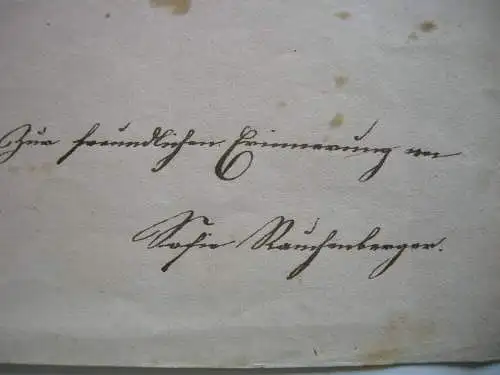 Zur freundlichen Erinnerung an
Sofie Rauchenberger.